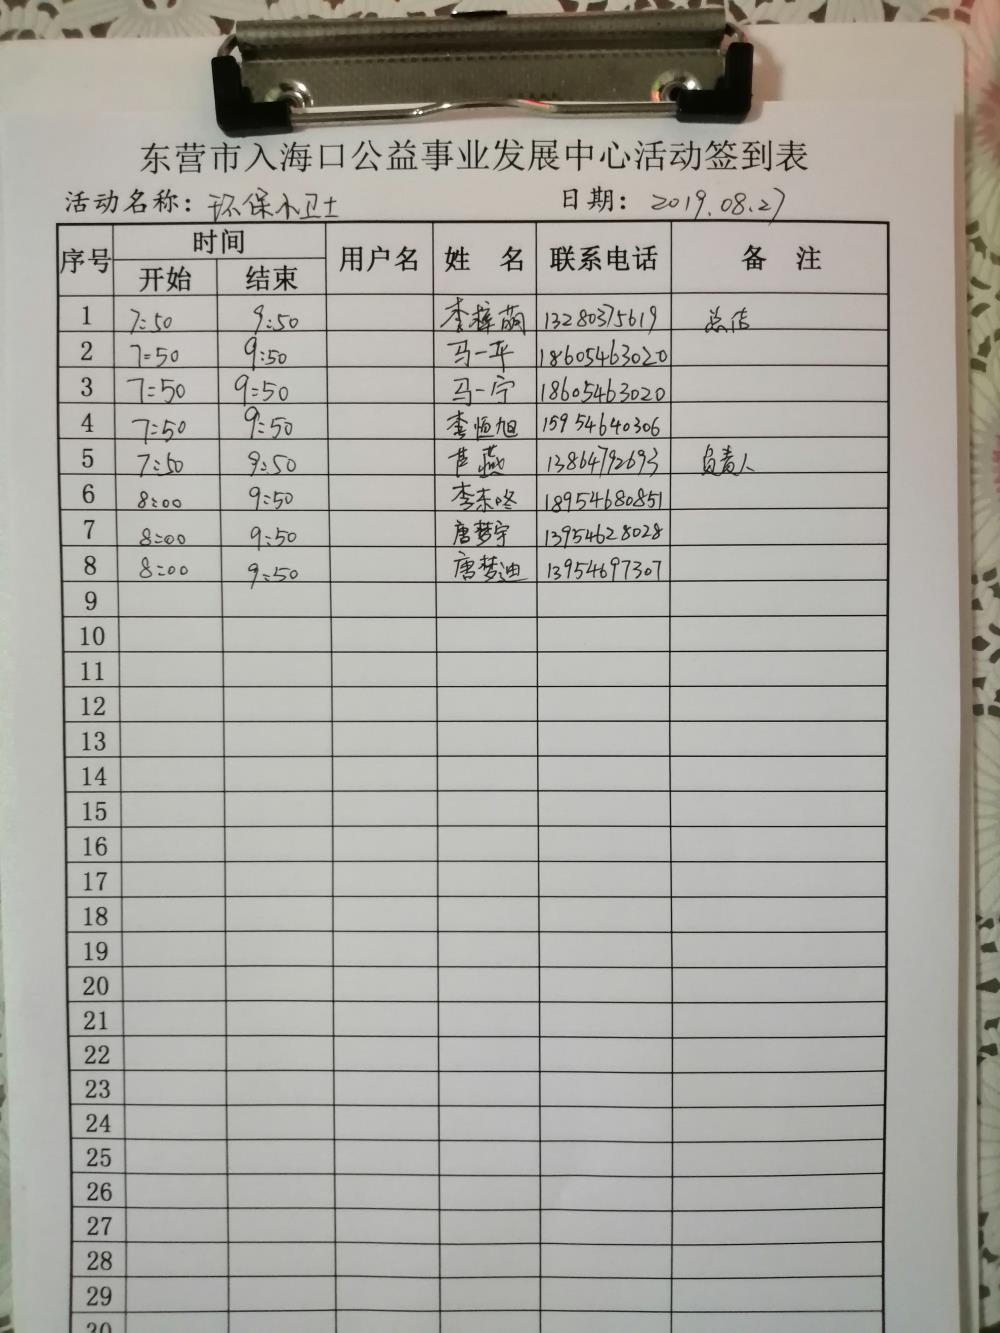 东营市入海口公益事业发展中心活动签到表
活动名称：环保小卫士 日期：2019.08.27
序号 时间 用户名 姓 名 联系电话 备 注
开始 结束
1 7:50 9:50 李梓萌 13280375619 总结
2 7:50 9:50 马一平 18605463020
3 7:50 9:50 马一宁 18605463020
4 7:50 9:50 李恒旭 15954640306
5 7:50 9:50 芦燕 13864792693 负责人
6 8:00 9:50 李东咚 18954680851
7 8:00 9:50 唐梦宇 13954628028
8 8:00 9:50 唐梦迪 13954697307
9
10
11
12
13
14
15
16
17
18
19
20
21
22
23
24
25
26
27
28
29
30